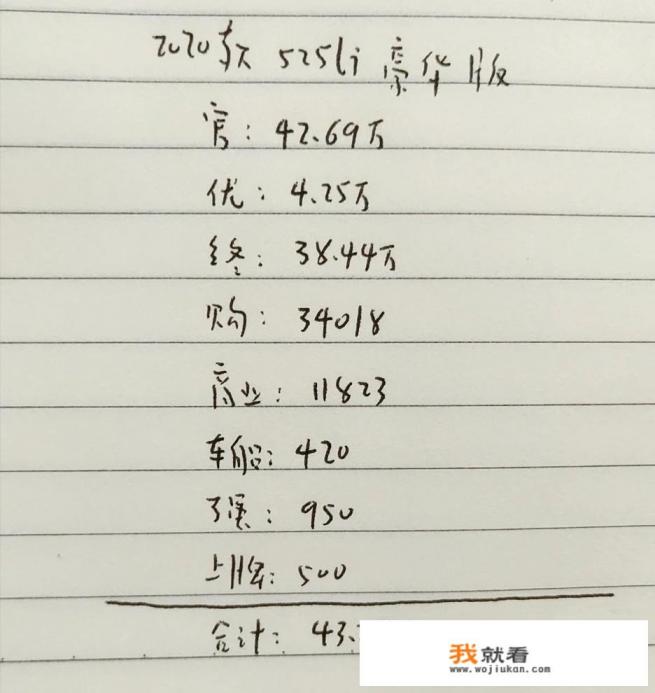 2020款 525li 豪华版
官: 42.69万
优: 4.25万
终: 38.44万
购: 34018
商业: 11823
车船: 420
强: 950
上牌: 500
合计: 43.
我就看
www.wojiukan.com